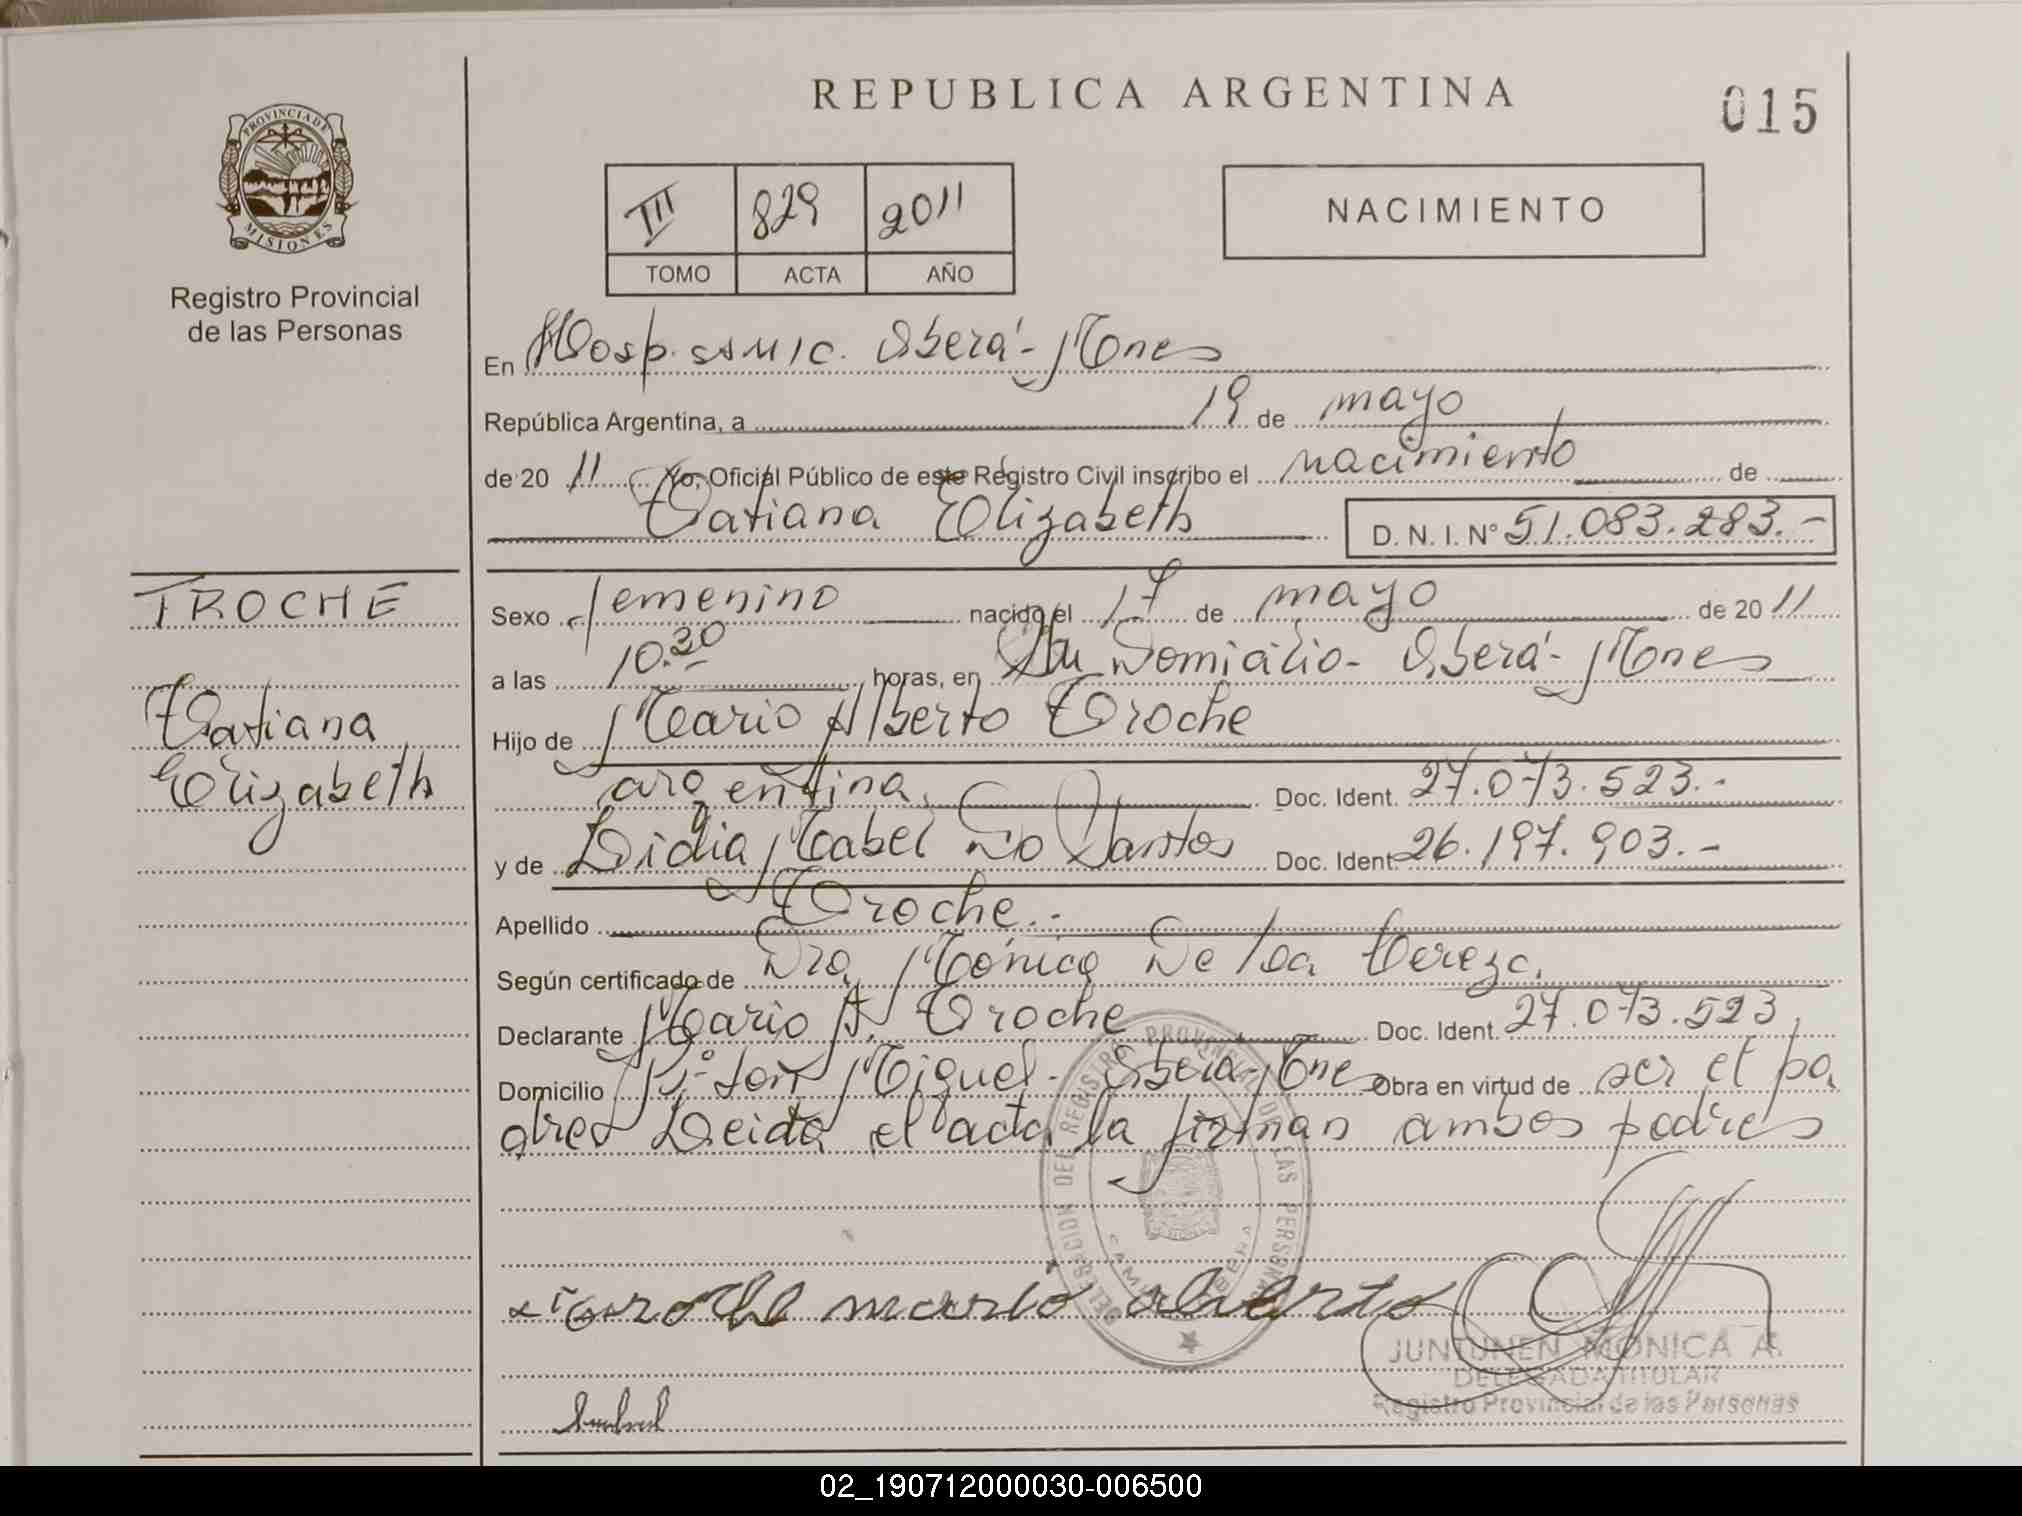 REPUBLICA ARGENTINA
015
PROVINCIA DE
MISIONES
Registro Provincial
de las Personas
III 829 2011
TOMO ACTA AÑO
NACIMIENTO
En Hosp. SAMIC. Oberá - Mnes
República Argentina, a 19 de mayo
de 20 11 Yo, Oficial Público de este Registro Civil inscribo el nacimiento de
Tatiana Elizabeth D. N. I. N° 51.083.283.-
TROCHE
Tatiana
Elizabeth
Sexo femenino nacido el 17 de mayo de 20 11
a las 10.30 horas, en Su Domicilio - Oberá - Mnes
Hijo de Mario Alberto Troche
argentina. Doc. Ident. 27.073.523.-
y de Lidia Mabel Do Santos Doc. Ident. 26.197.903.-
Apellido Troche.-
Según certificado de Dra. Mónica De
Declarante Mario A. Troche Doc. Ident. 27.073.523
Domicilio Miguel - Oberá - Mnes Obra en virtud de ser el pa
dre. Leida el acta la firman ambos padres
DELEGACION DEL REGISTRO PROVINCIAL DE LAS PERSONAS
troche mario alberto
JUNTUNEN MONICA A.
DELEGADA TITULAR
Registro Provincial de las Personas
02_190712000030-006500